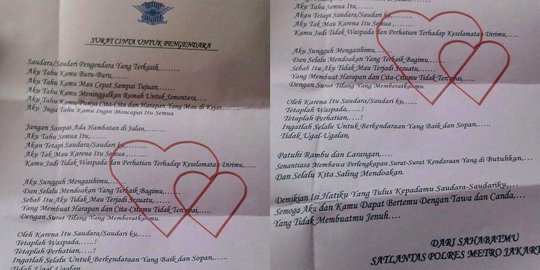 SURAT CINTA UNTUK PENGENDARA
Saudara/Saudari Pengendara Yang Terkasih,……
Aku Tahu Kamu Buru-Buru,……
Aku Tahu Kamu Mau Cepat Sampai Tujuan,……
Aku Tahu Kamu Meninggalkan Rumah Untuk Sementara,……
Aku Tahu Kamu Punya Cita-Cita dan Harapan Yang Mau di Kejar,……
Aku Juga Tahu Kamu Ingin Mencapai Itu Semua.
Jangan Sampai Ada Hambatan di Jalan,……
Aku Tahu Semua Itu,……
Akan Tetapi Saudara/Saudari ku,……
Aku Tak Mau Karena Itu Semua……
Kamu Jadi Tidak Waspada dan Perhatian Terhadap Keselamatan Dirimu,……
Aku Sungguh Mengasihimu,……
Dan Selalu Mendoakan Yang Terbaik Bagimu,……
Sebab Itu Aku Tidak Mau Terjadi Sesuatu,……
Yang Membuat Harapan dan Cita-Citamu Tidak Tercapai,……
Dengan Surat Tilang Yang Memberatkan.
Oleh Karena Itu Saudara/Saudari ku,……
Tetaplah Waspada,……!
Tetaplah Perhatian,……!
Ingatlah Selalu Untuk Berkendaraan Yang Baik dan Sopan,
Tidak Ugal-Ugalan
Aku Tahu Semua Itu,……
Akan Tetapi Saudara/Saudari ku,……
Aku Tak Mau Karena Itu Semua……
Kamu Jadi Tidak Waspada dan Perhatian Terhadap Keselamatan Dirimu,
Aku Sungguh Mengasihimu,……
Dan Selalu Mendoakan Yang Terbaik Bagimu,……
Sebab Itu Aku Tidak Mau Terjadi Sesuatu,……
Yang Membuat Harapan dan Cita-Citamu Tidak Tercapai,……
Dengan Surat Tilang Yang Memberatkan.
Oleh Karena Itu Saudara/Saudari ku,……
Tetaplah Waspada,……!
Tetaplah Perhatian,……!
Ingatlah Selalu Untuk Berkendaraan Yang Baik dan Sopan,
Tidak Ugal-Ugalan,
Patuhi Rambu dan Larangan,
Senantiasa Membawa Perlengkapan Surat-Surat Kendaraan Yang di Butuhkan,
Dan Selalu Kita Saling Mendoakan.
Demikian Isi Hatiku Yang Tulus Kepadamu Saudara-Saudariku,
Semoga Aku dan Kamu Dapat Bertemu Dengan Tawa dan Canda,……
Yang Tidak Membuatmu Jenuh….
DARI SAHABATMU
SATLANTAS POLRES METRO JAKART